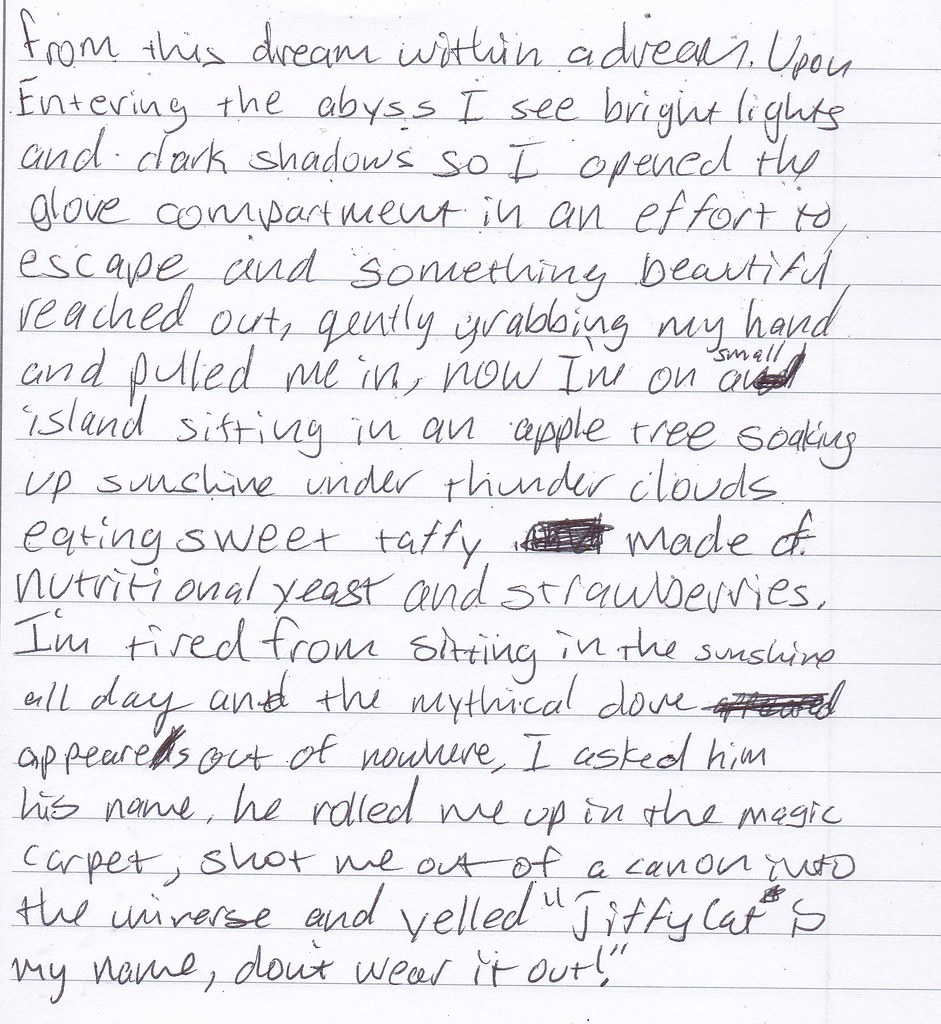 from this dream within a dream. Upon
Entering the abyss I see bright lights
and dark shadows so I opened the
glove compartment in an effort to
escape and something beautiful
reached out, gently grabbing my hand
and pulled me in, now I'm on a small
island sitting in an apple tree soaking
up sunshine under thunder clouds
eating sweet taffy made of
nutritional yeast and strawberries.
I'm tired from sitting in the sunshine
all day and the mythical dove
appeares out of nowhere, I asked him
his name, he rolled me up in the magic
carpet, shot me out of a canon into
the universe and yelled "Jiffy Cat is
my name, don't wear it out!"